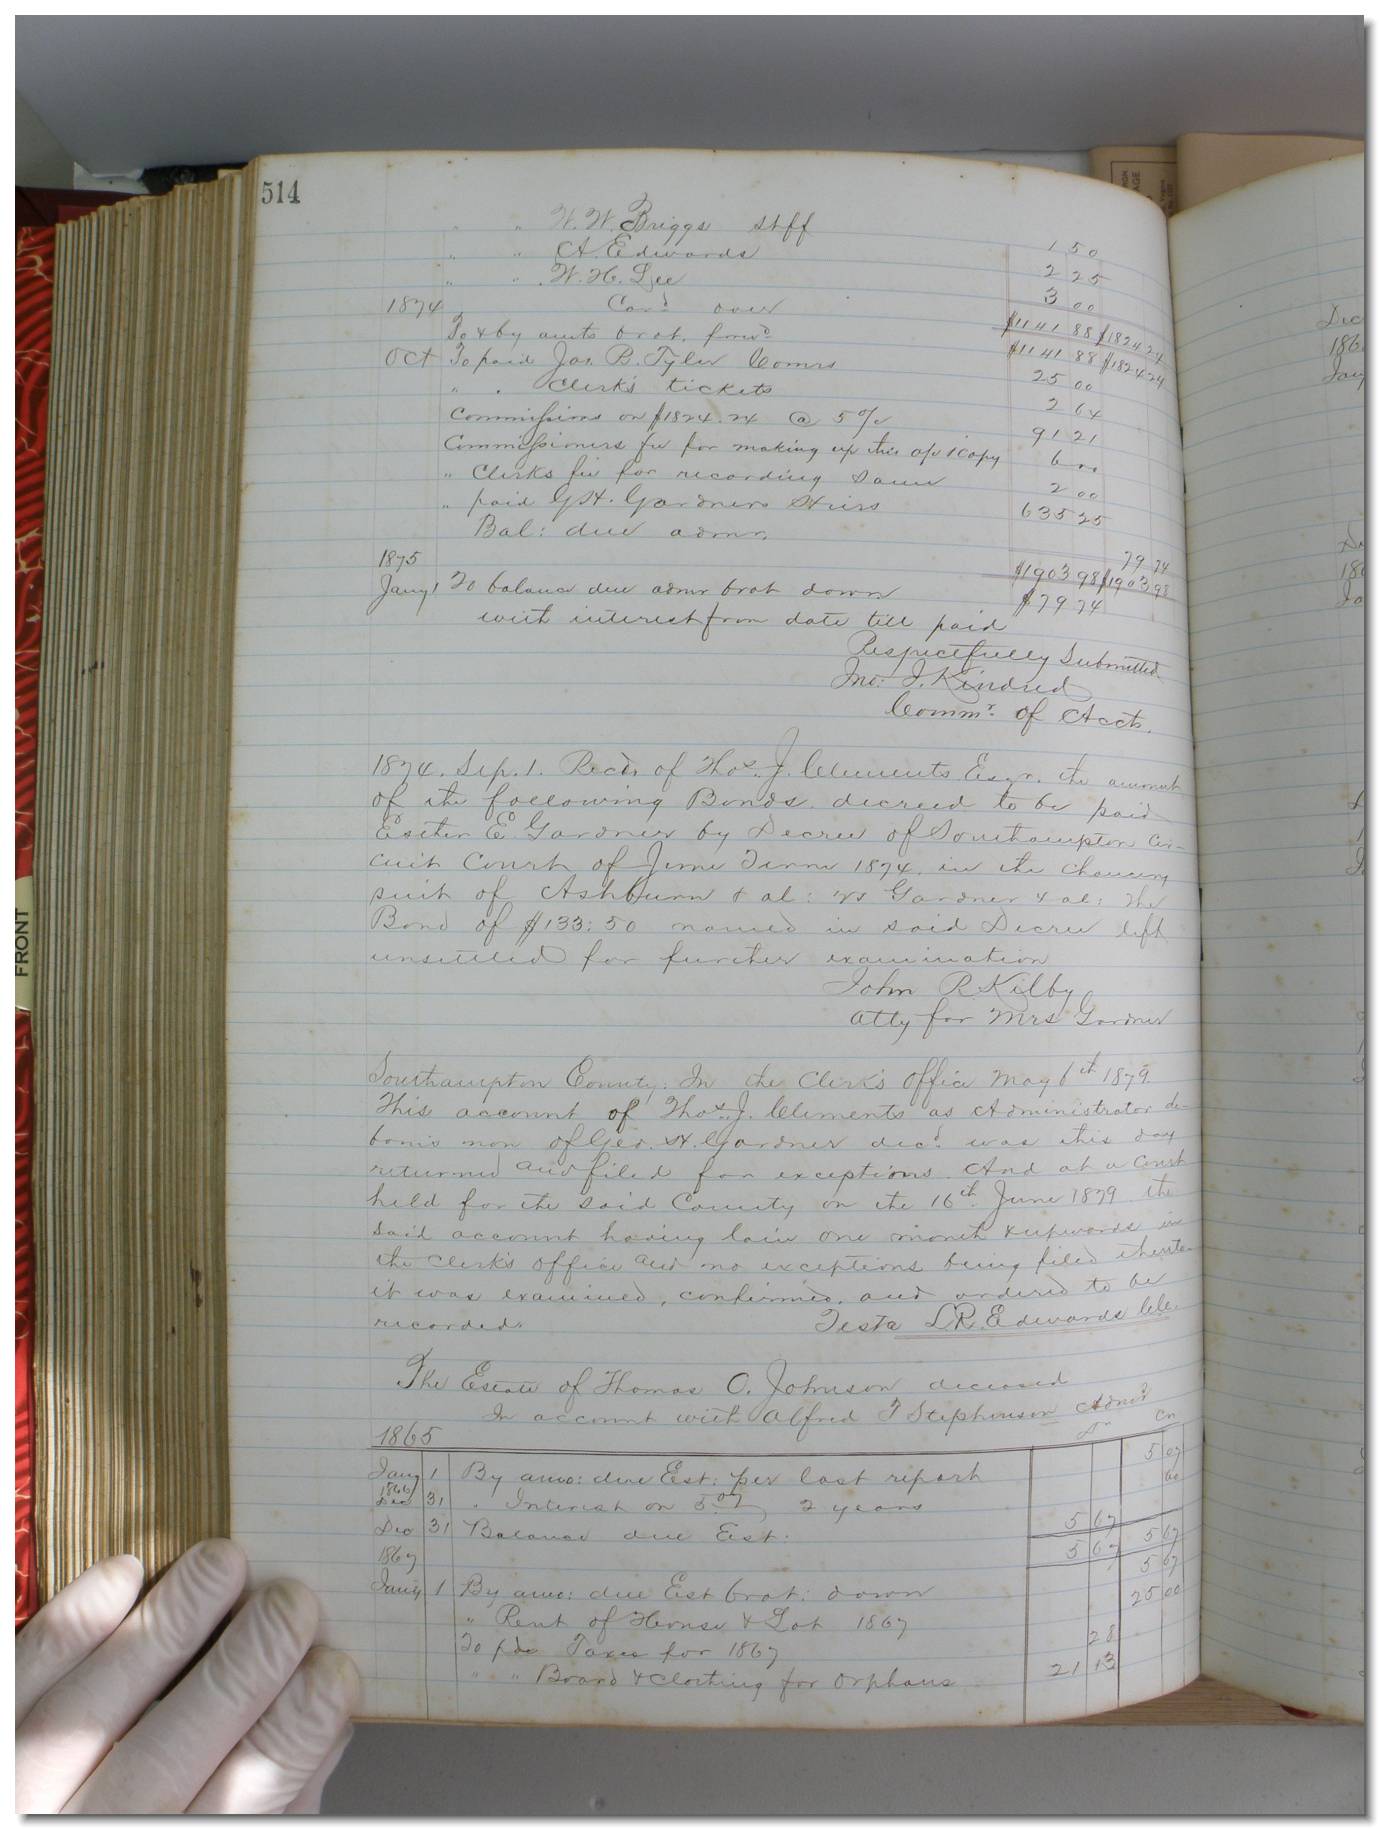 514
" " W. W. Briggs stff 1 50
" " A. Edwards 2 25
" " W. H. Lee 3 00
Card over $1141 88 $1824 24
1874
To & by amts brot. forwd $1141 88 $1824 24
Oct To paid Jas. B. Tyler Comrs 25 00
" " Clerk's tickets 2 64
Commissions on $1824.24 @ 5% 91 21
Commissioners fee for making up this a/c & copy 6 00
" Clerks fee for recording same 2 00
" paid G. H. Gardners Heirs 635 25
Bal: due admr. 79 74
$1903 98 $1903 98
1875
Jany 1 To balance due admr brot down $79 74
with interest from date till paid
Respectfully Submitted
Jno: J. Kindred
Commr. of Accts.
1874. Sep. 1. Recd. of Thos. J. Clements Esqr. the amount
of the following Bonds. decreed to be paid
Ester E. Gardner by Decree of Southampton Cir-
cuit Court of June Term 1874. in the chancery
suit of Ashburn & al: vs Gardner & al: The
Bond of $133:50 named in said Decree left
unsettled for further examination
John R. Kilby
Atty for Mrs Gardner
Southampton County: In the Clerk's Office May 6th 1879.
This account of Thos. J. Clements as Administrator de-
bonis non of Geo. H. Gardner decd. was this day
returned and filed for exceptions. And at a Court
held for the said County on the 16th June 1879 the
said account having lain one month & upwards in
the Clerk's Office and no exceptions being filed thereto
it was examined, confirmed, and ordered to be
recorded. Teste L. R. Edwards Clk.
The Estate of Thomas O. Johnson deceased
In account with Alfred T Stephenson Admr
1865 Dr Cr
Jany 1 By amo: due Est: per last report 5 07
1866
Dec 31 " Interest on 5.07 2 years 60
Dec 31 Balance due Est: 5 67
5 67 5 67
1867
Jany 1 By amo: due Est brot: down 5 67
" Rent of House & Lot 1867 25 00
To pd Taxes for 1867 28
" " Board & Clothing for Orphans 21 13
Dec
186
Jany
FRONT